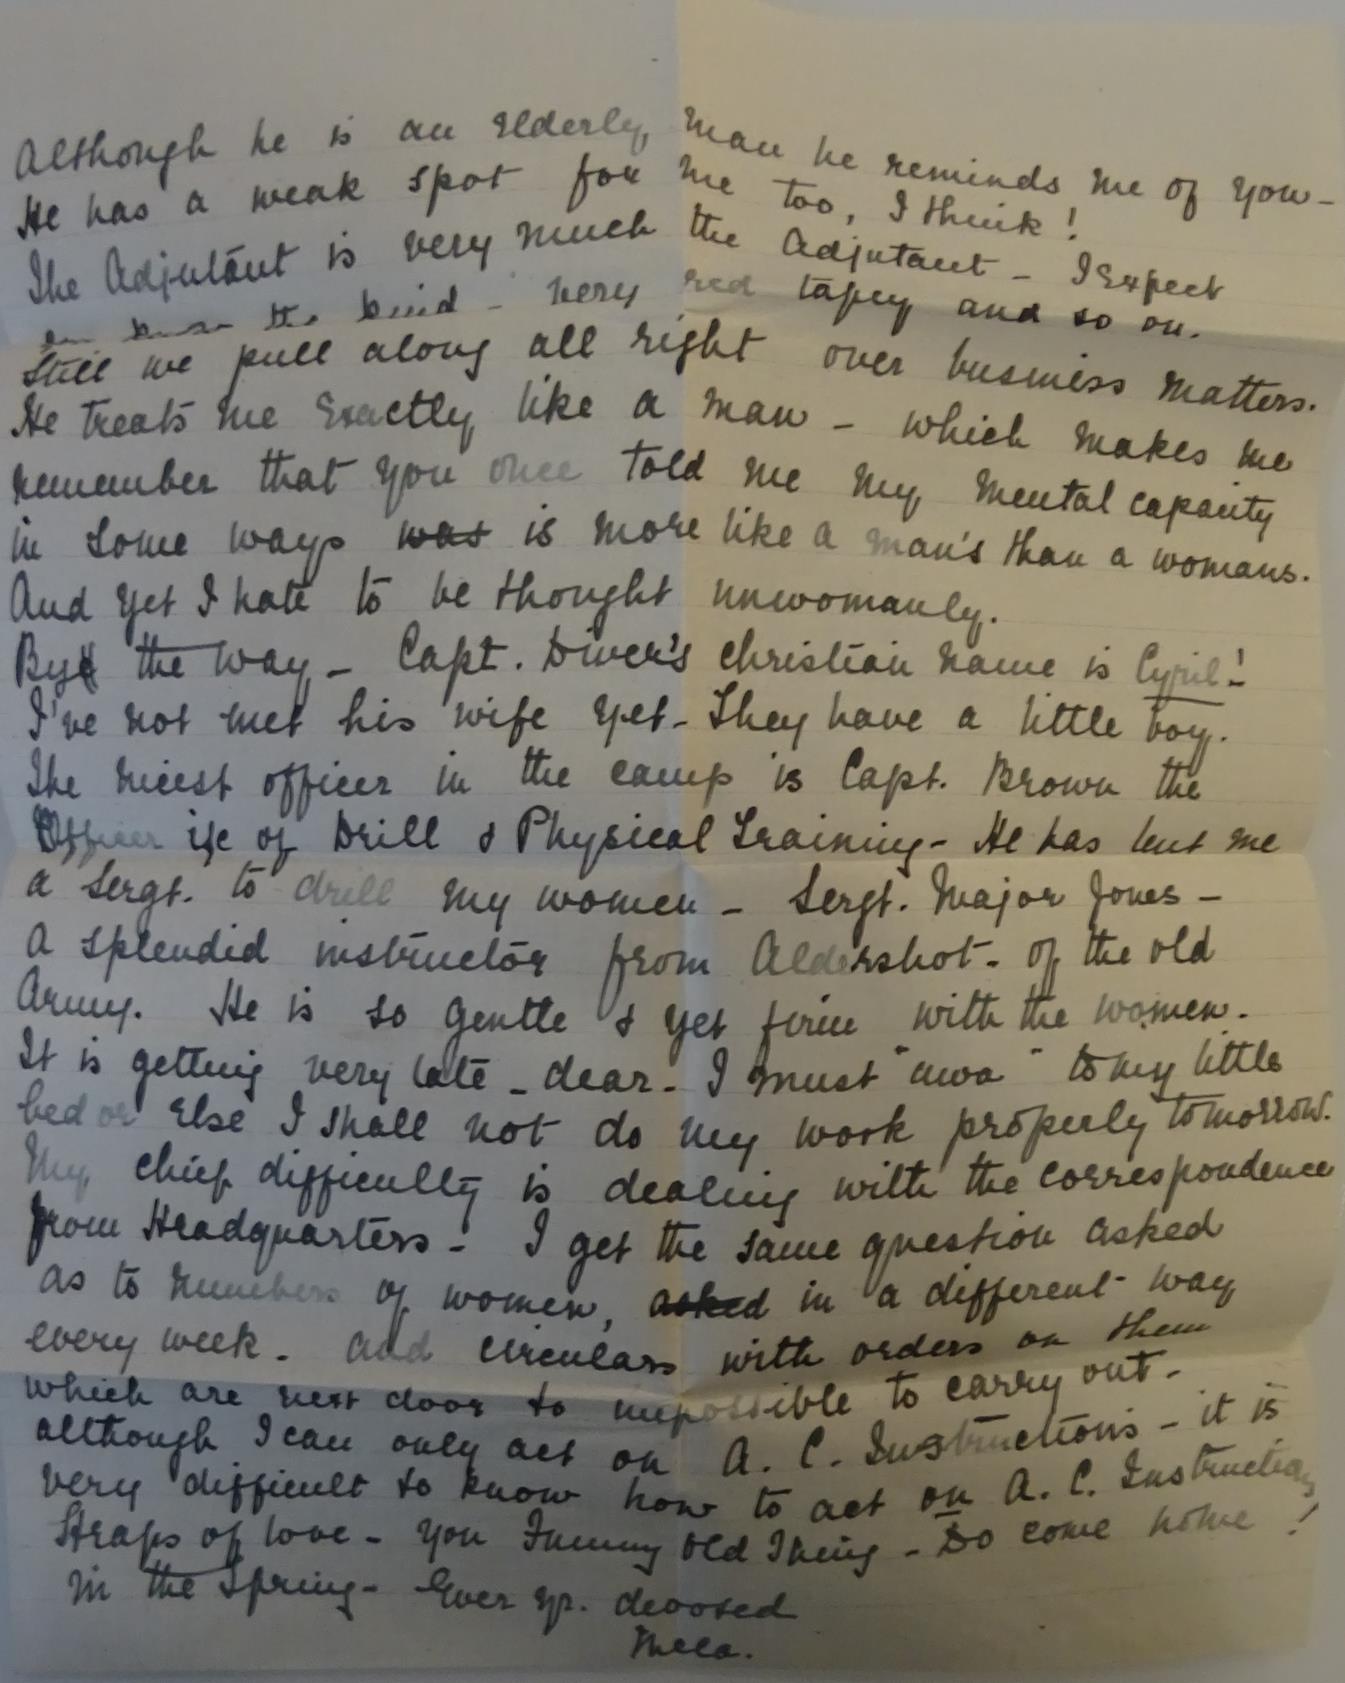 Although he is an elderly man he reminds me of you -
He has a weak spot for me too, I think!
The Adjutant is very much the Adjutant - I expect
the kind - very red tapey and so on.
Still we pull along all right over business matters.
He treats me exactly like a man - which makes me
remember that you once told me my mental capacity
in some ways was is more like a man's than a womans.
And yet I hate to be thought unwomanly.
By the way - Capt. Diver's christian name is Cyril!
I've not met his wife yet - They have a little boy.
The nicest officer in the camp is Capt. Brown the
Officer i/c of Drill & Physical Training - He has lent me
a Sergt. to drill my women - Sergt. Major Jones -
A splendid instructor from Aldershot - of the old
Army. He is so gentle & yet firm with the women.
It is getting very late - dear - I must "awa" to my little
bed or else I shall not do my work properly tomorrow.
My chief difficulty is dealing with the correspondence
from Headquarters - I get the same question asked
as to numbers of women, asked in a different way
every week. and circulars with orders on them
which are next door to impossible to carry out -
although I can only act on A. C. Instructions - it is
very difficult to know how to act on A. C. Instructions
Heaps of love - you Funny Old Thing - Do come home!
in the Spring - Ever yr. devoted